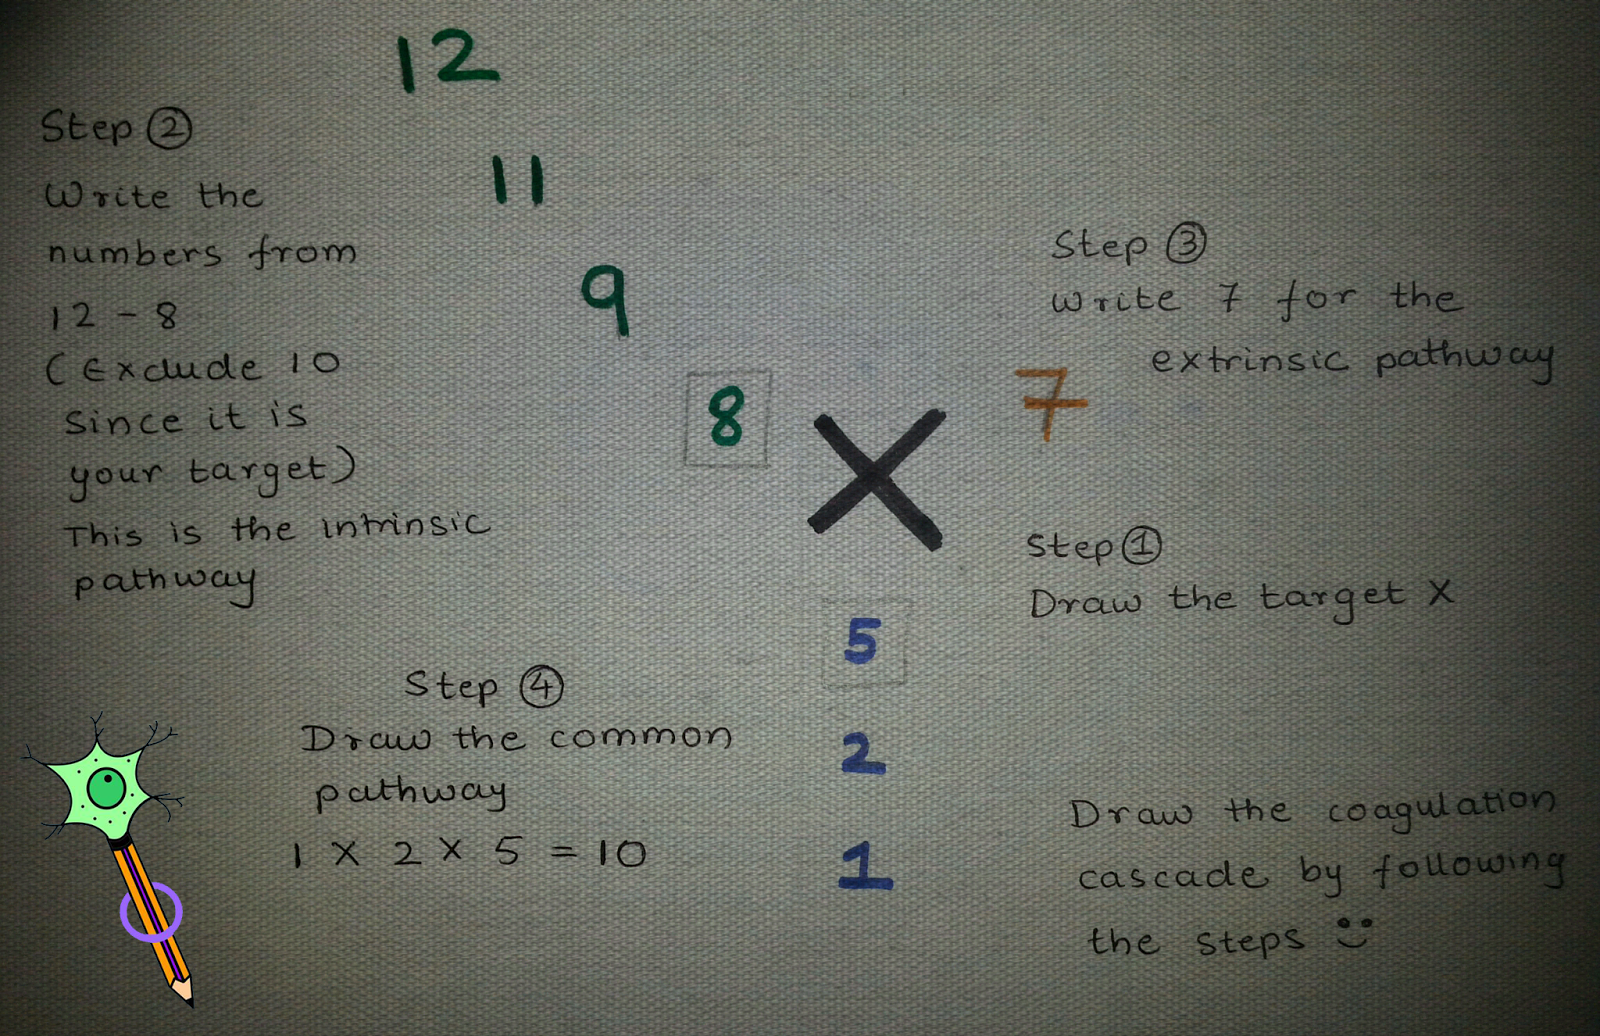 12
11
9
8
X
7
5
2
1
Step ②
Write the
numbers from
12 - 8
(Exclude 10
Since it is
your target)
This is the intrinsic
pathway
Step ③
Write 7 for the
extrinsic pathway
Step ①
Draw the target X
Step ④
Draw the common
pathway
1 X 2 X 5 = 10
Draw the coagulation
cascade by following
the steps